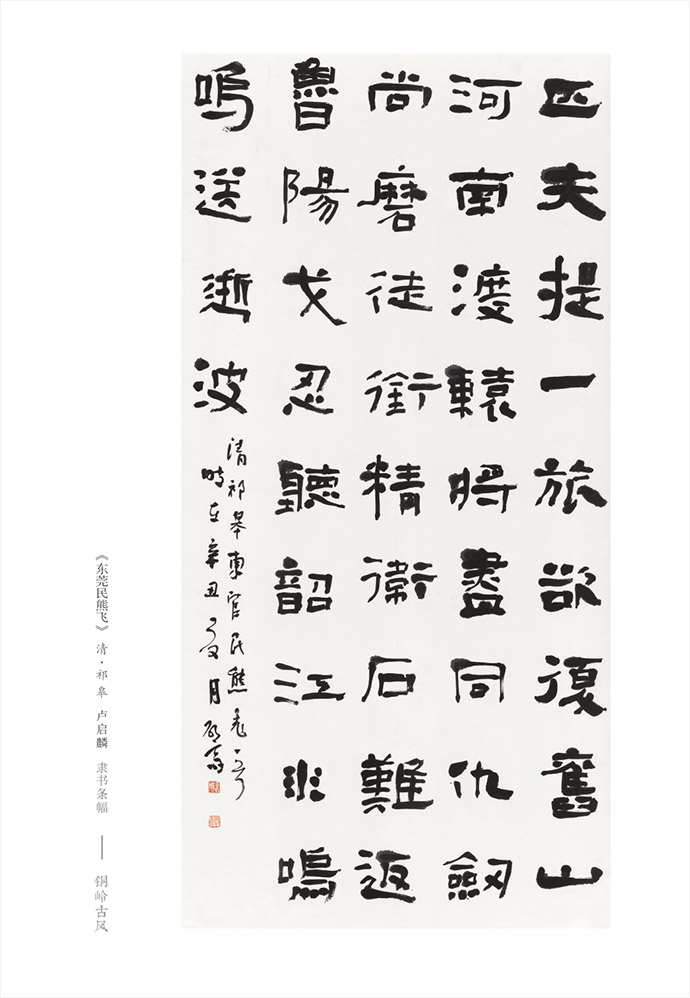 匹夫提一旅欲復舊山
河南渡轅將盡同仇劒
尚磨徒銜精衛石難返
魯陽戈忍聽韶江水嗚
嗚送逝波
清祁皋東官民熊飛一首
時在辛丑夏月
《东莞民熊飞》 清·祁皋 卢启麟 隶书条幅 —— 铜岭古风